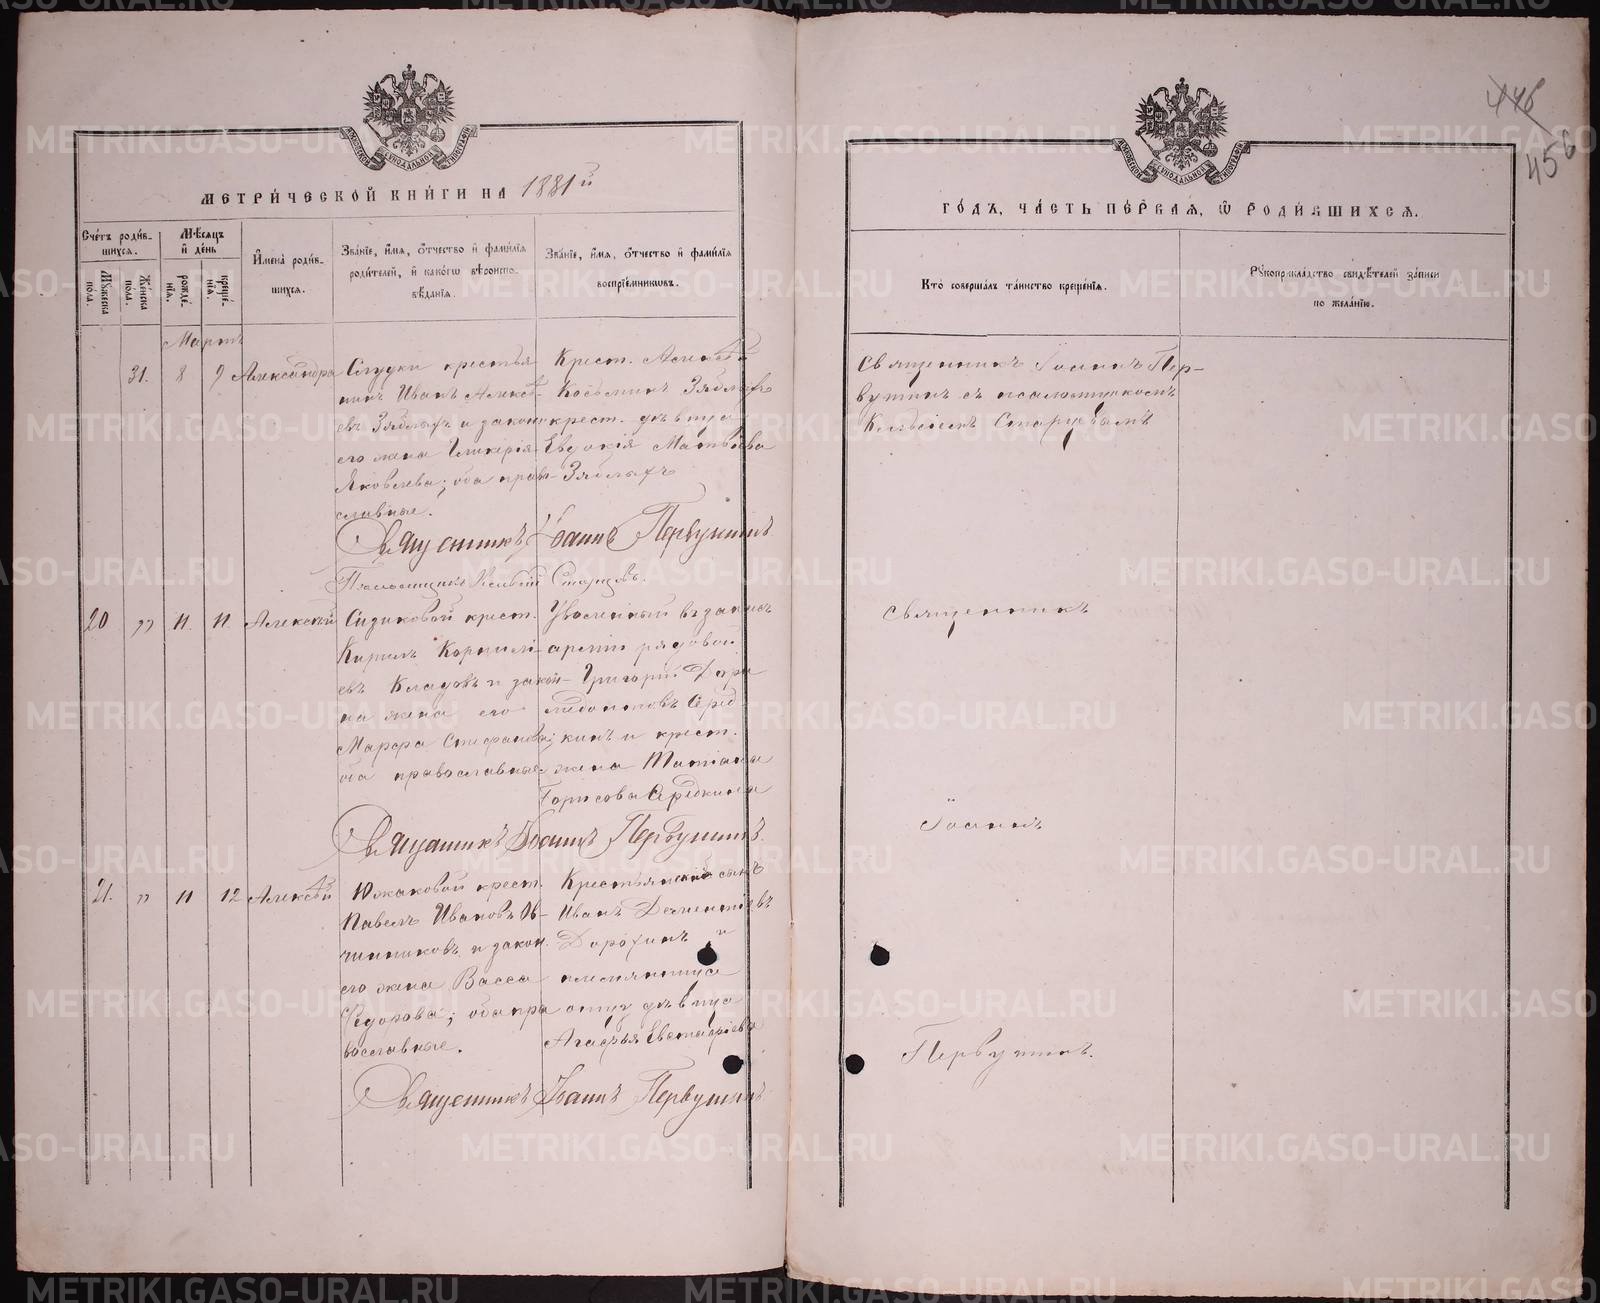 МЕТРИЧЕСКОЙ КНИГИ НА 1881й
Счетъ родив-
шихся.
Мѣсяцъ
и день
Мужеска
пола.
Женска
пола.
рожде-
нія.
креще-
нія.
Имена родив-
шихся.
Званіе, имя, отчество и фамилія
родителей, и какогѡ вѣроиспо-
вѣданія.
Званіе, имя, отчество и фамилія
воспріемниковъ.
Мартъ
31. 8 9 Александра
Слудки крестья
нинъ Иванъ Алексѣ-
евъ Зяблыхъ и закон
его жена Гликерія
Яковлева; оба право-
славные.
Крест. Алексѣй
Косьминъ Зяблыхъ
крест. дѣвица
Евдокія Матвѣева
Зяблыхъ
Священникъ Іоаннъ Первушинъ
Псаломщикъ Старцовъ.
20 " 11. 11. Алексѣй
крест.
Кирилъ Корнилі-
евъ Кладовъ и закон-
на жена его
Марфа Стефанова;
оба православные.
Уволенный въ запасъ
арміи рядовой
Григорій
Серед-
кинъ и крест.
жена Татіана
Борисова Середкина
Священникъ Іоаннъ Первушинъ.
21. " 11 12 Алексѣй
Южаковой крест.
Павелъ Ивановъ Ов-
чинниковъ и закон.
его жена Васса
Федорова; оба пра
вославные.
Крестьянскій сынъ
Иванъ Дементіевъ
Дорохинъ и
дѣвица
Агафья Евстафіева
Священникъ Іоаннъ Первушинъ
446
456
ГОДЪ, ЧАСТЬ ПЕРВАЯ, Ѡ РОДИВШИХСЯ.
Кто совершалъ таинство крещенія.
Рукоприкладство свидѣтелей записи
по желанію.
Священникъ Іоаннъ Пер-
вушинъ съ псаломщикомъ
Старцовымъ
Священникъ
Іоаннъ
Первушинъ.
METRIKI.GASO-URAL.RU